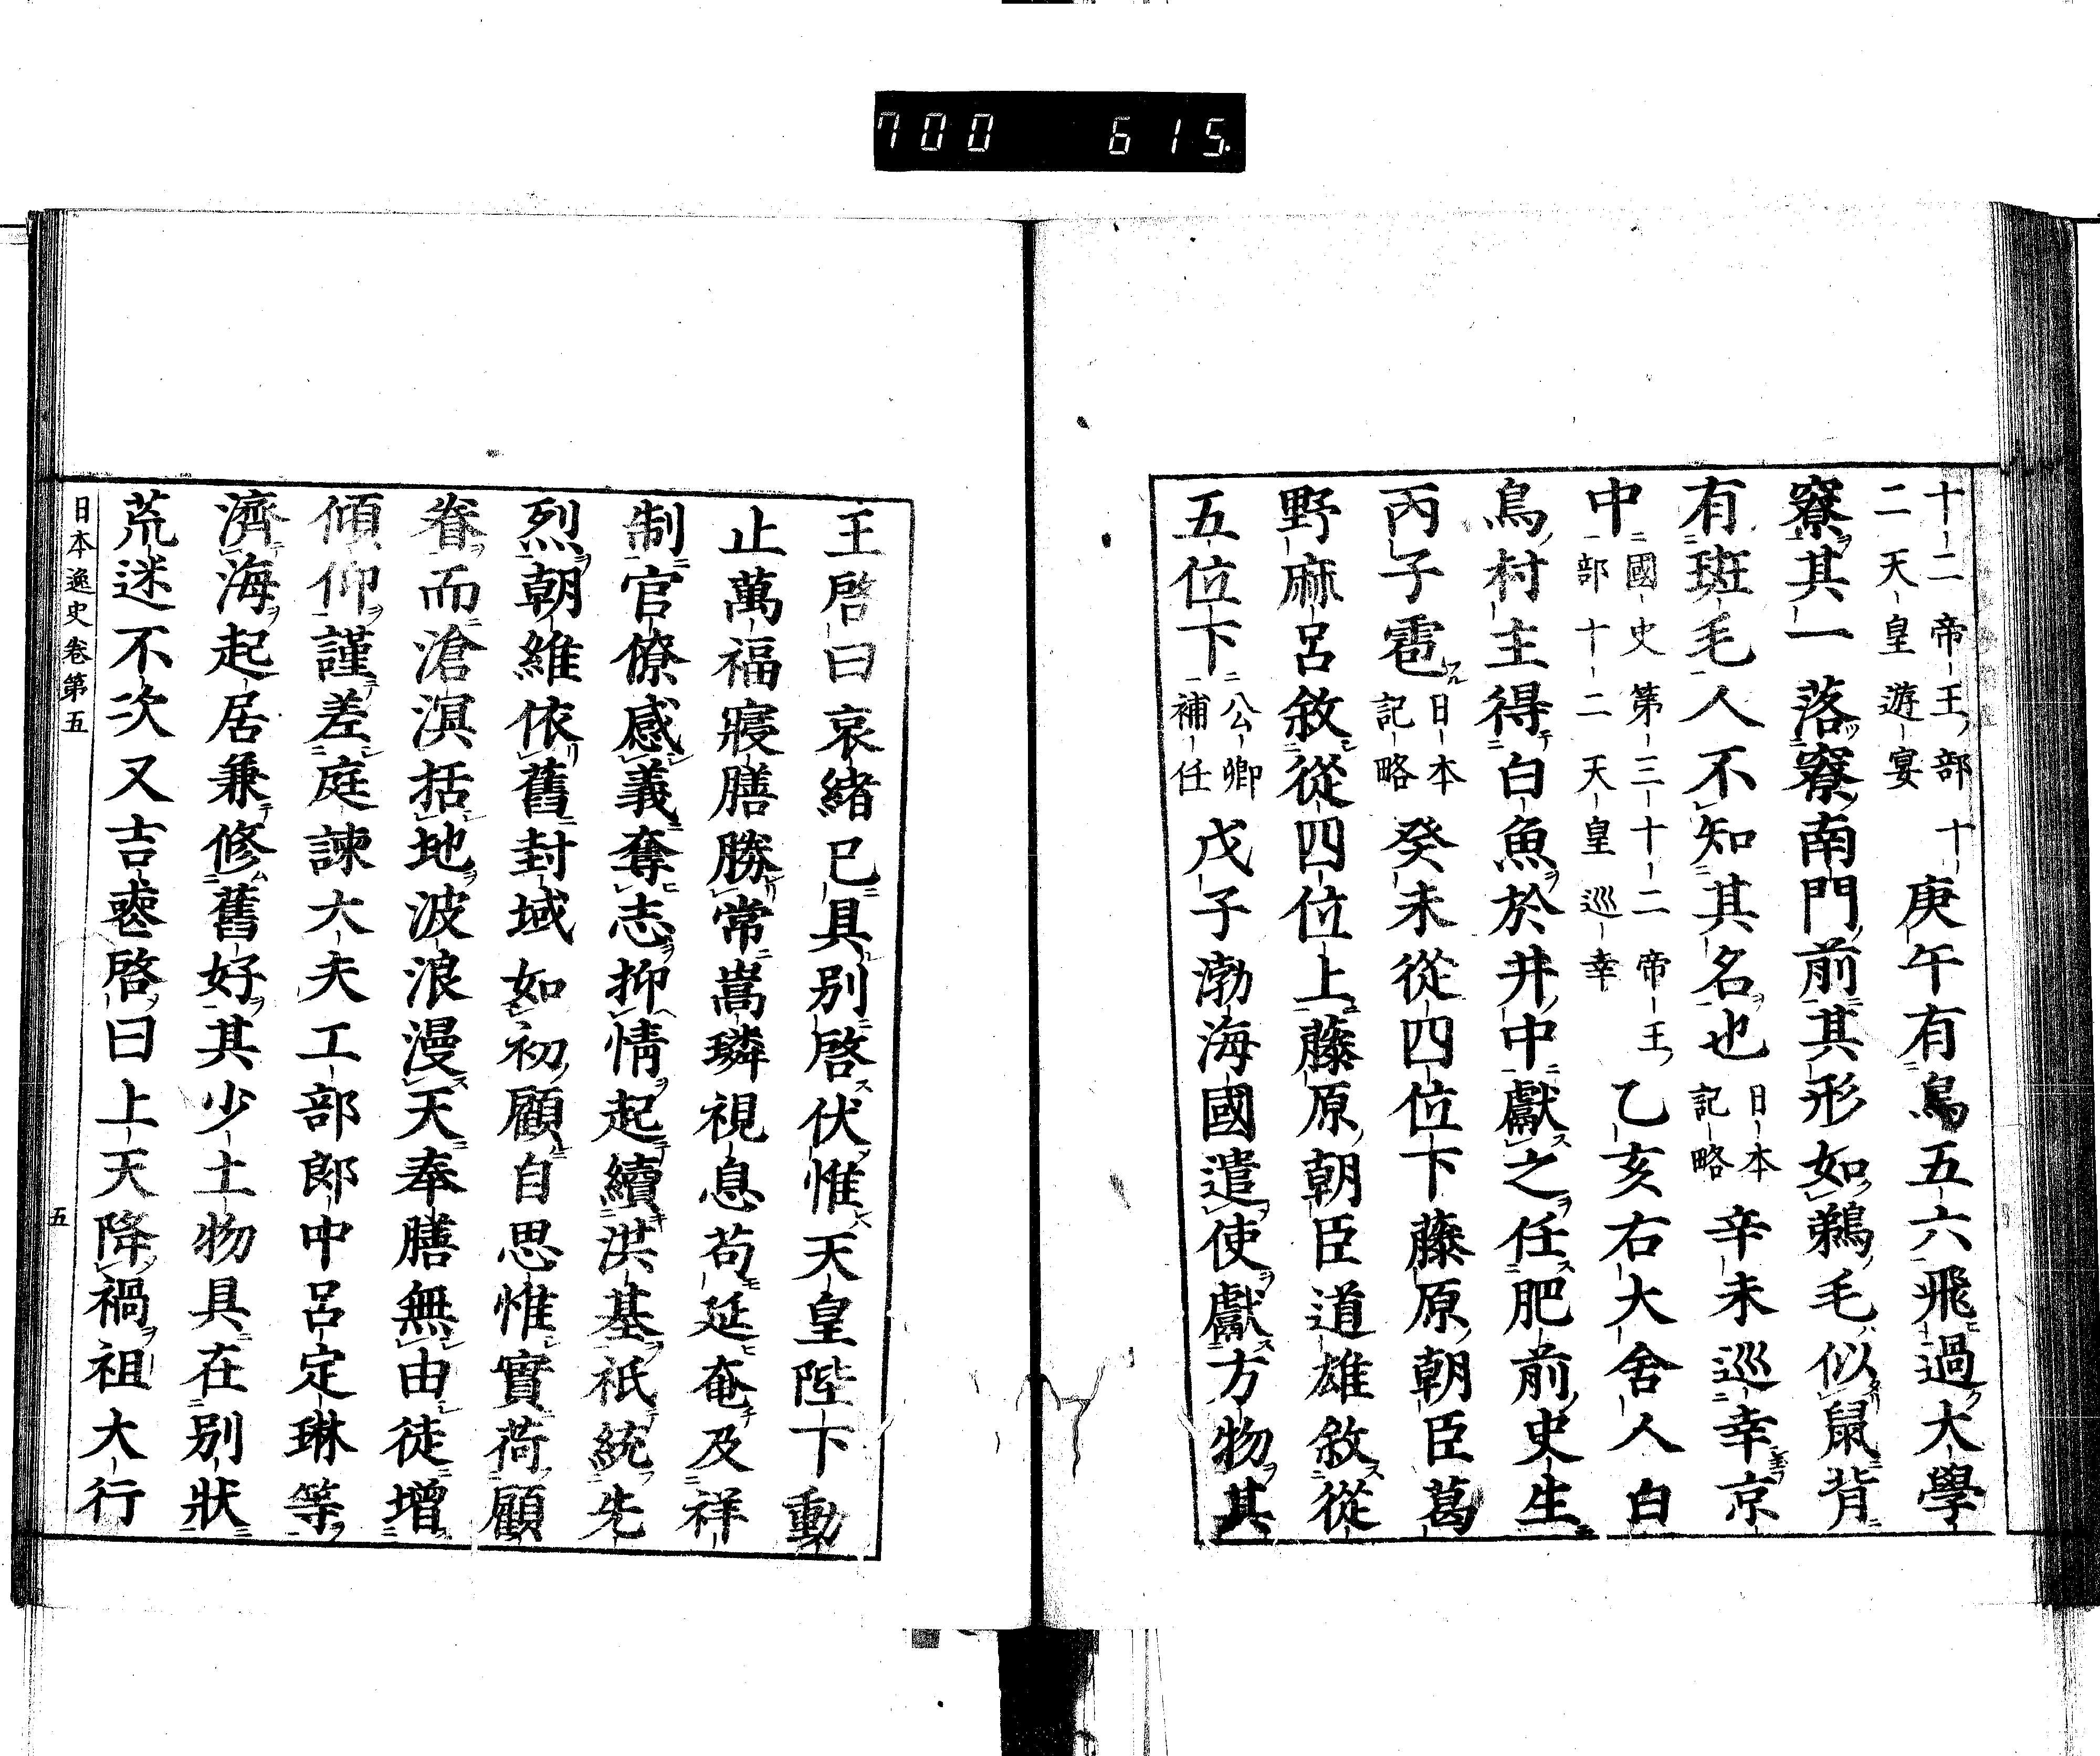 700 615
十二帝王部十
二天皇遊宴
庚午有鳥五六飛過大學
寮其一落寮南門前其形如鵜毛似鼠背
有斑毛人不知其名也
日本
記略
辛未巡幸京
中
國史第三十二帝王
部十二天皇巡幸
乙亥右大舍人白
鳥村主得白魚於井中獻之任肥前史生
丙子雹
日本
記略
癸未從四位下藤原朝臣葛
野麻呂敘從四位上藤原朝臣道雄敘從
五位下
公卿
補任
戊子渤海國遣使獻方物其
王啓曰哀緒已具別啓伏惟天皇陛下動
止萬福寢膳勝常嵩璘視息苟延奄及祥
制官僚感義奪志抑情起續洪基祇統先
烈朝維依舊封域如初顧自思惟實荷顧
眷而滄溟括地波浪漫天奉膳無由徒增
傾仰謹差庭諫大夫工部郎中呂定琳等
濟海起居兼修舊好其少土物具在別狀
荒迷不次又吉啓曰上天降禍祖大行
日本逸史卷第五
五